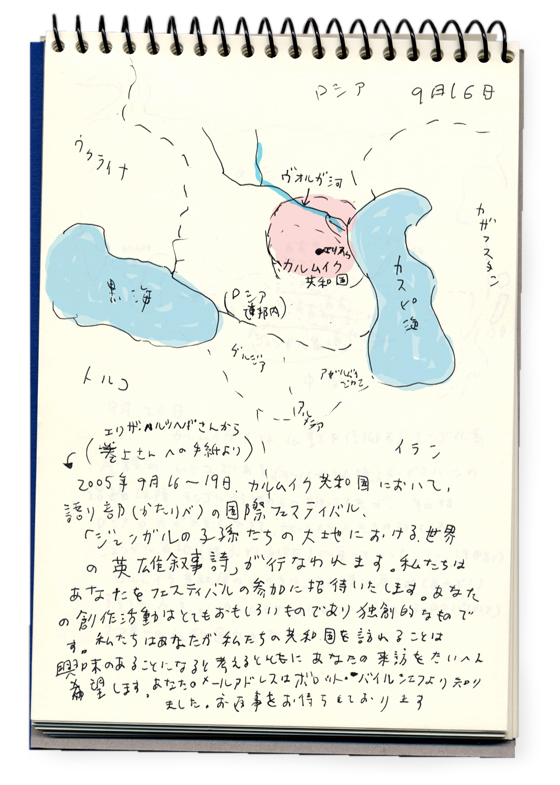 ロシア 9月16日
ウクライナ
ヴォルガ河
カザフスタン
エリスタ
カルムイク
共和国
カスピ海
黒海
(ロシア
連邦内)
グルジア
アゼルバイ
ジャン
アルメニア
トルコ
イラン
エリザ・バルリヘドさんから
(巻上さんへの手紙より)
2005年9月16〜19日、カルムイク共和国において、
語り部(かたりべ)の国際フェスティバル、
「ジャンガルの子孫たちの大地における、世界
の英雄叙事詩」が行なわれます。私たちは
あなたをフェスティバルの参加に招待いたします。あなた
の創作活動はとてもおもしろいものであり独創的なもので
す。私たちはあなたが私たちの共和国を訪れることは
興味のあることになると考えるとともにあなたの来訪をたいへん
希望します。あなたのメールアドレスはボロット・バイルシェフより知り
ました。お返事をお待ちしております